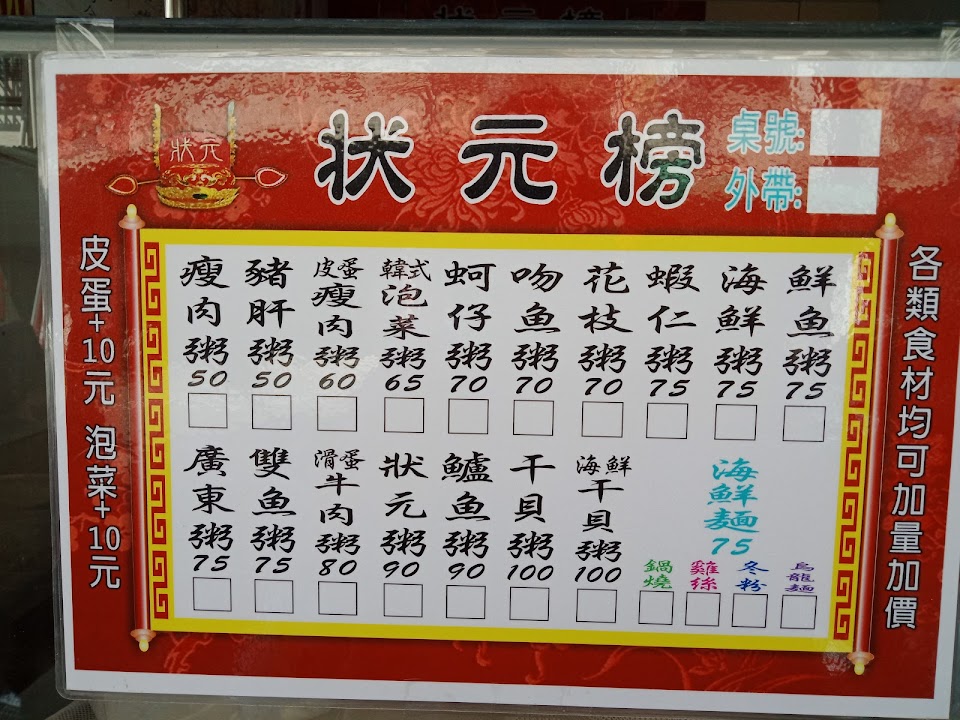 狀元榜
狀元
桌號:
外帶:
皮蛋+10元 泡菜+10元
瘦肉粥 50
豬肝粥 50
皮蛋瘦肉粥 60
韓式泡菜粥 65
蚵仔粥 70
吻魚粥 70
花枝粥 70
蝦仁粥 75
海鮮粥 75
鮮魚粥 75
廣東粥 75
雙魚粥 75
滑蛋牛肉粥 80
狀元粥 90
鱸魚粥 90
干貝粥 100
海鮮干貝粥 100
海鮮麵 75
鍋燒
雞絲
冬粉
烏龍麵
各類食材均可加量加價